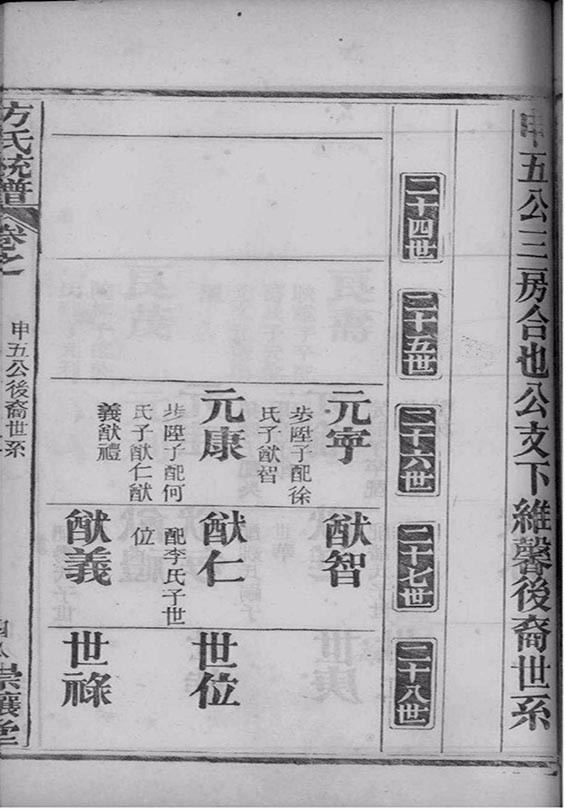 申五公三房合也公支下維馨後裔世系
二十四世
二十五世
二十六世
二十七世
二十八世
元寕
步陞子配徐
氏子猷智
猷智
元康
步陞子配何
氏子猷仁猷
義猷禮
猷仁
配李氏子世
位
世位
猷義
世祿
方氏統譜
卷之
申五公後裔世系